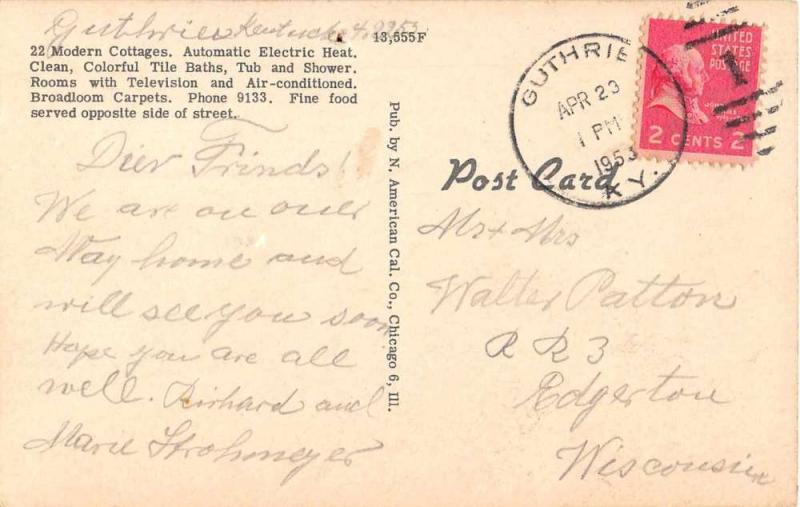 Guthrie Kentucky
13,555F
22 Modern Cottages. Automatic Electric Heat.
Clean, Colorful Tile Baths, Tub and Shower.
Rooms with Television and Air-conditioned.
Broadloom Carpets. Phone 9133. Fine food
served opposite side of street.
Dier Frinds!
We are on ouer
Way home and
will see you soon
Hope you are all
well. Richard and
Marie Strohmeyer
Pub. by N. American Cal. Co., Chicago 6, Ill.
Post Card
GUTHRIE
APR 23
1 PM
1953
KY.
UNITED
STATES
POSTAGE
2 CENTS 2
Mr + Mrs
Walter Patton
R R 3
Edgerton
Wisconsin